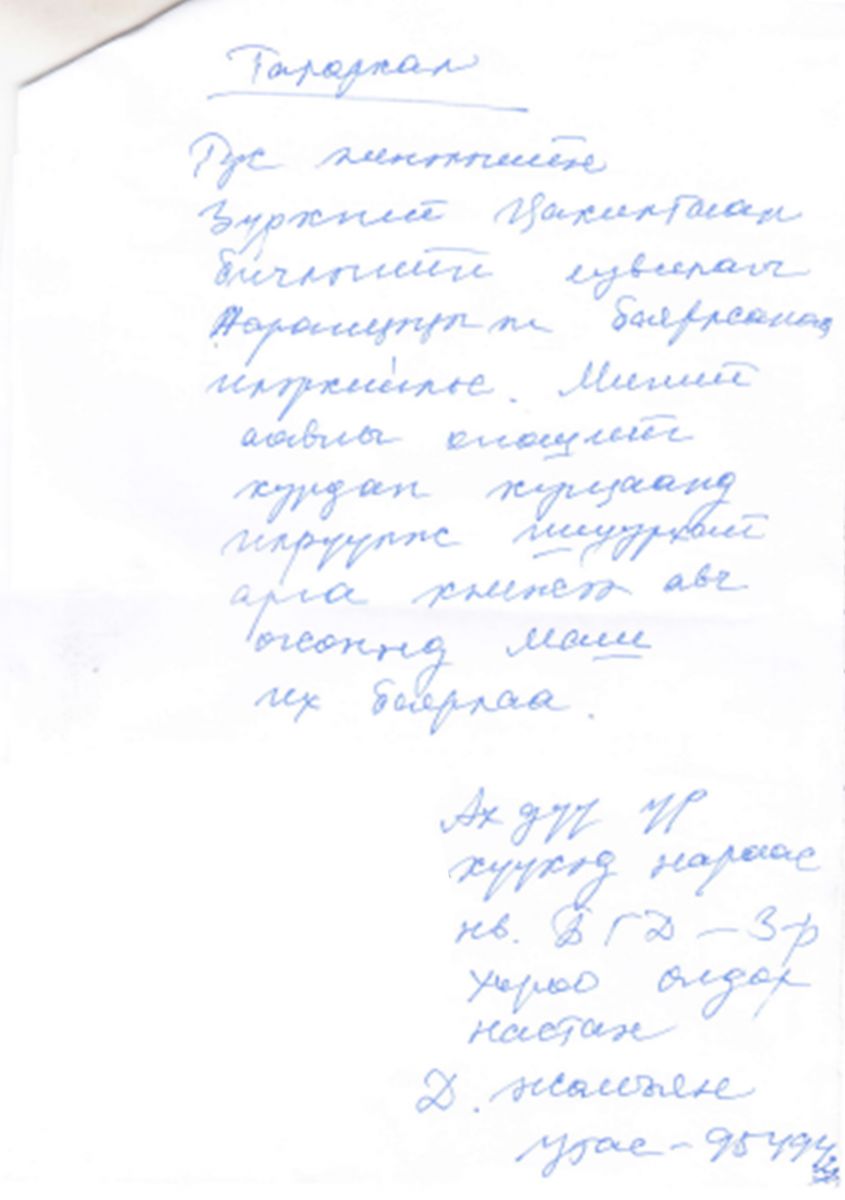 Талархал
Тус эмнэлгийн
Зүрхний Цахилгаан
бичлэгийн сувилагч
Наранцэцэгт баярласанаа
илэрхийлье. Миний
аавыг оношийг
хурдан хугацаанд
илрүүлж шуурхай
арга хэмжээ авч
өгсөнд маш
их баярлаа.
Ах дүү үр
хүүхэд нараас
нв. БГД - 3-р
хороо
настан
Д. Жамъян
Утас - 95494